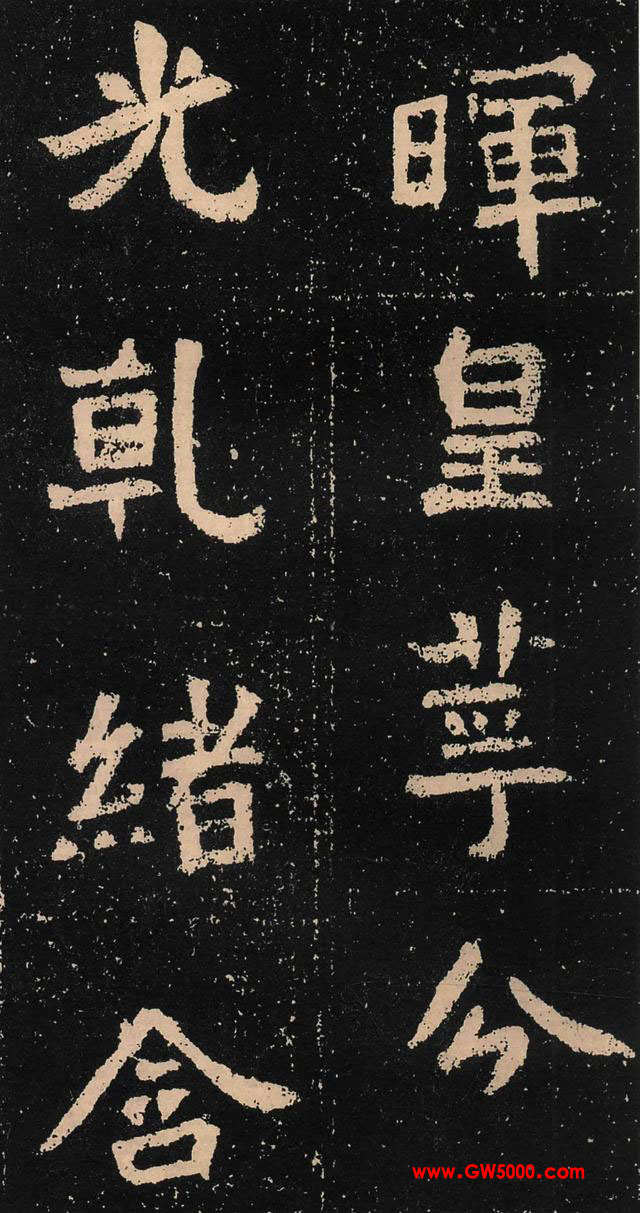 暉皇華分
光乾緒含
www.GW5000.com